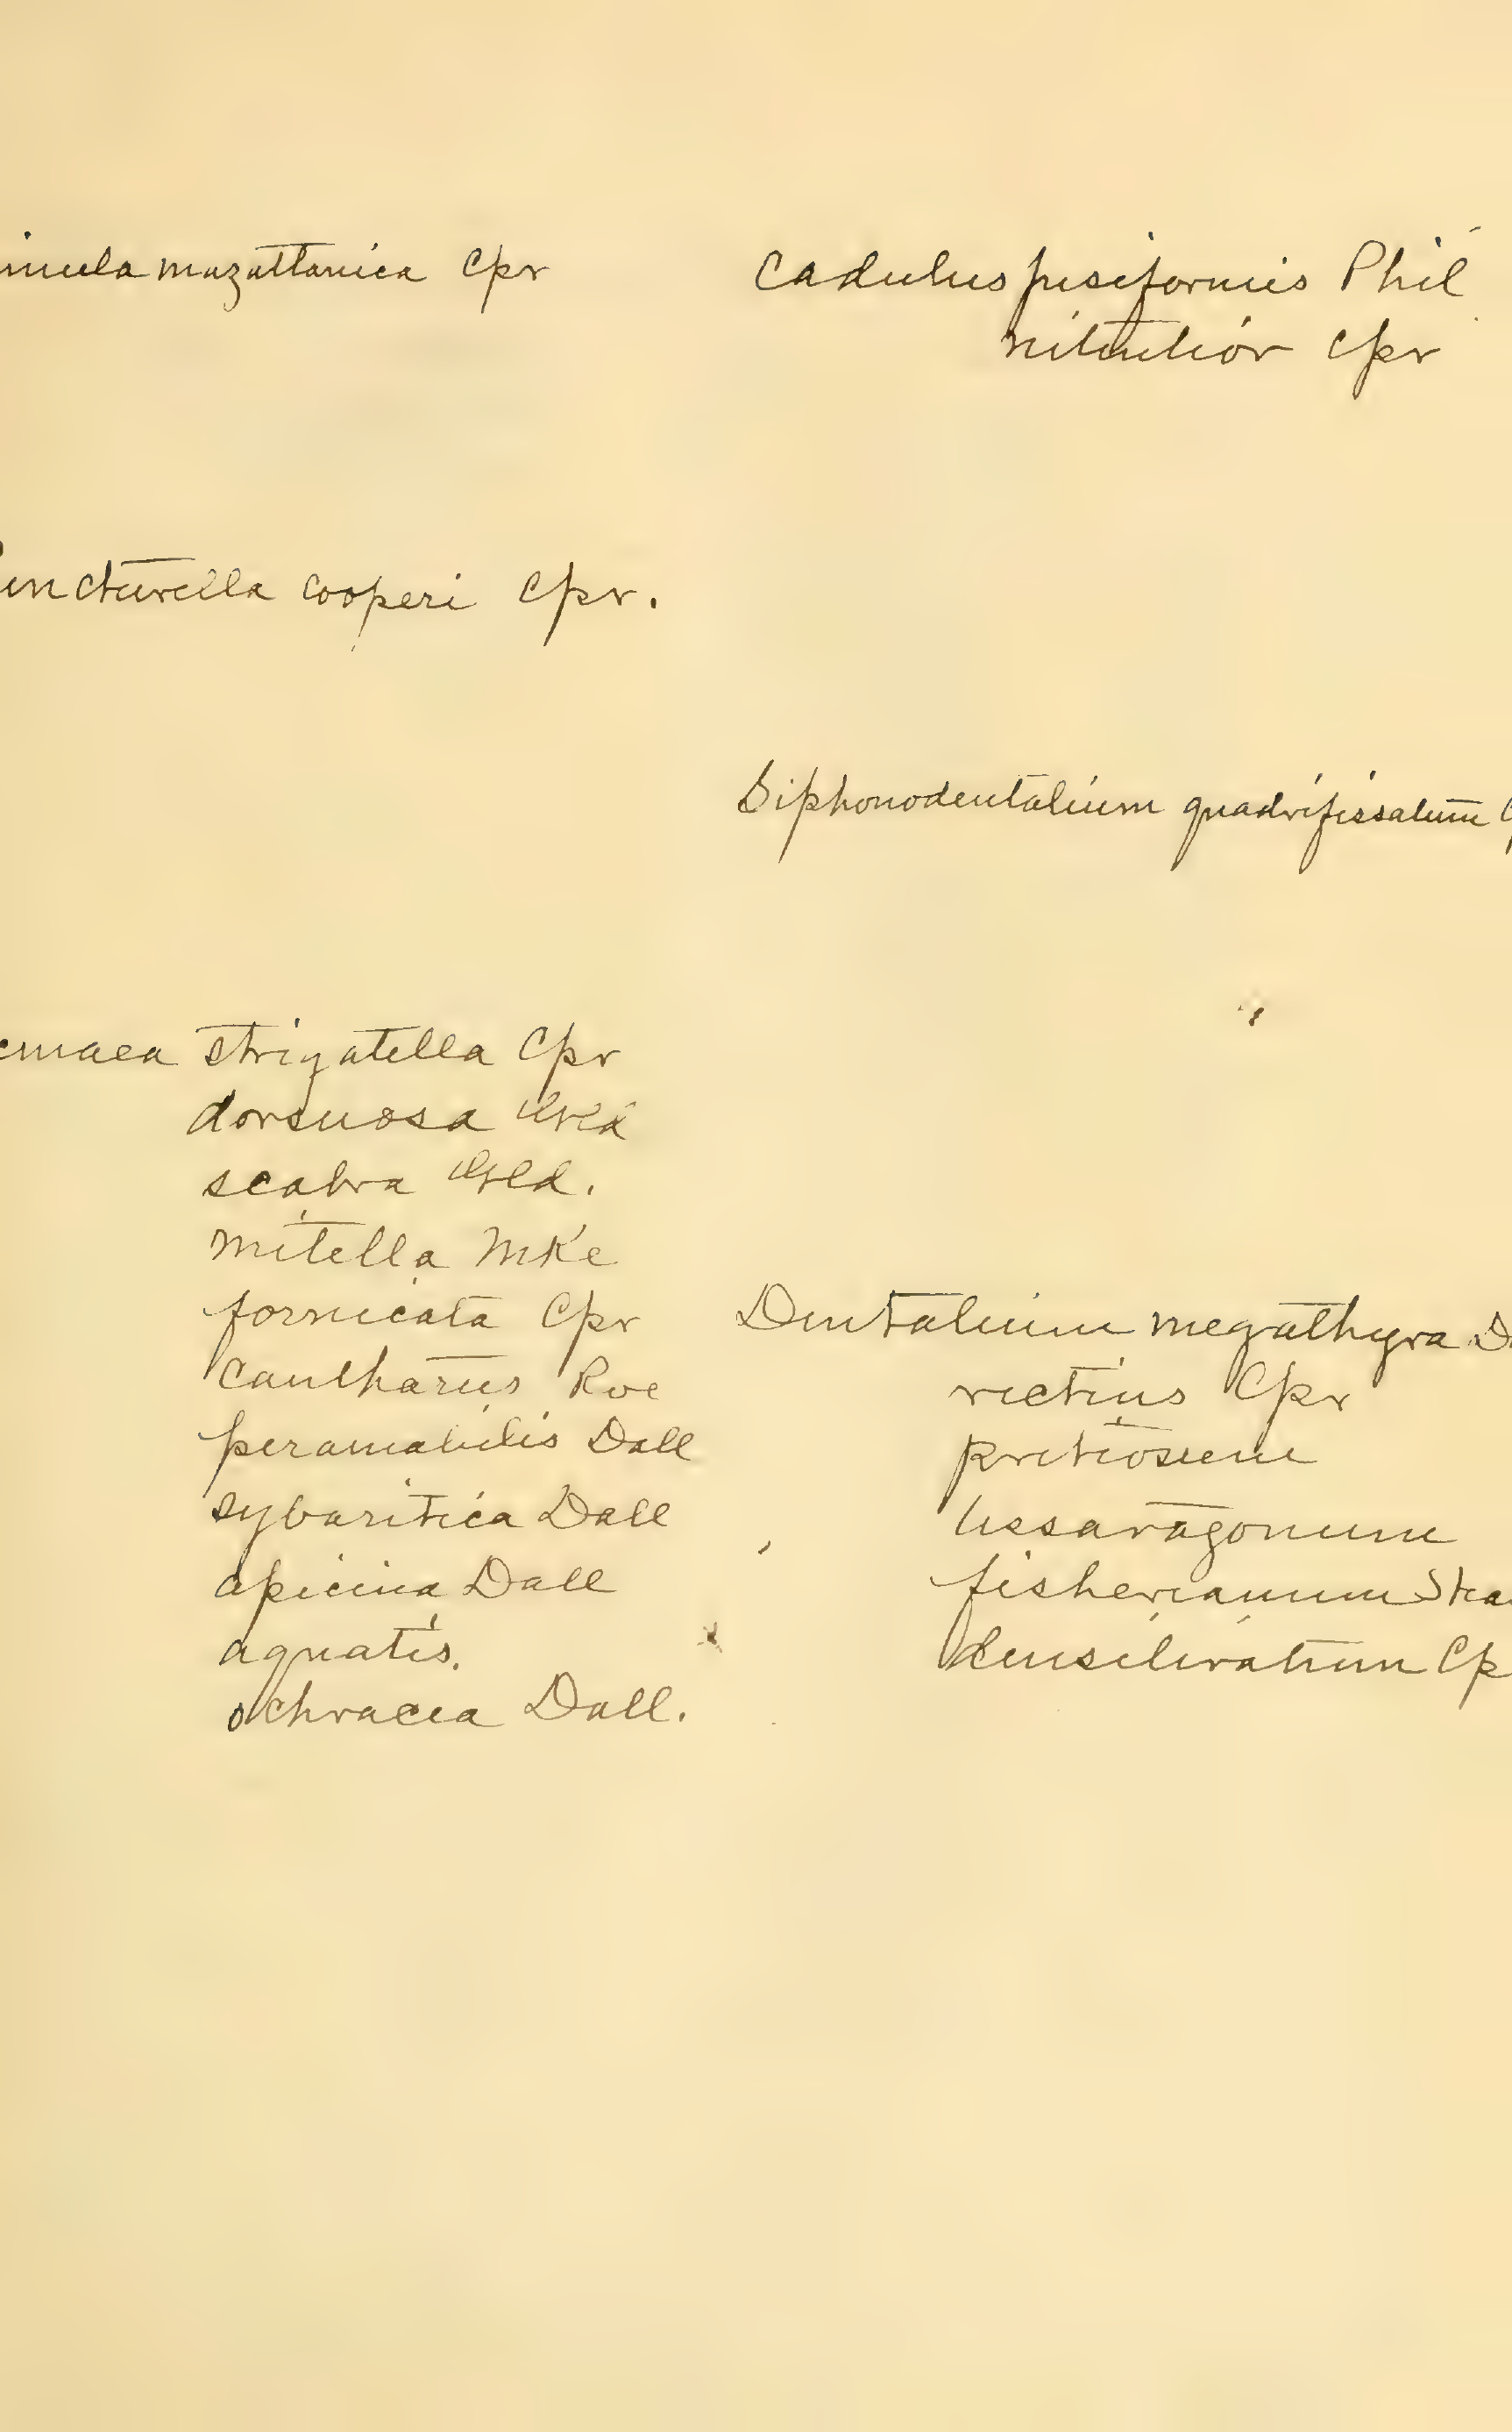 imula mazatlanica Cpr
uncturella cooperi Cpr.
cmaea strigatella Cpr
dorsuosa Gld
scabra Gld.
mitella Mke
fornicata Cpr
cantharus Rve
peramabilis Dall
sybaritica Dall
apicina Dall
aquatis.
ochracea Dall.
Cadulus pusiformis Phil
nitentior Cpr
Siphonodentalium quadrifissatum C
Dentalium megathyra D
rectius Cpr
pretiosum
hexaragonum
fisherianum Stea
densiliratum Cp